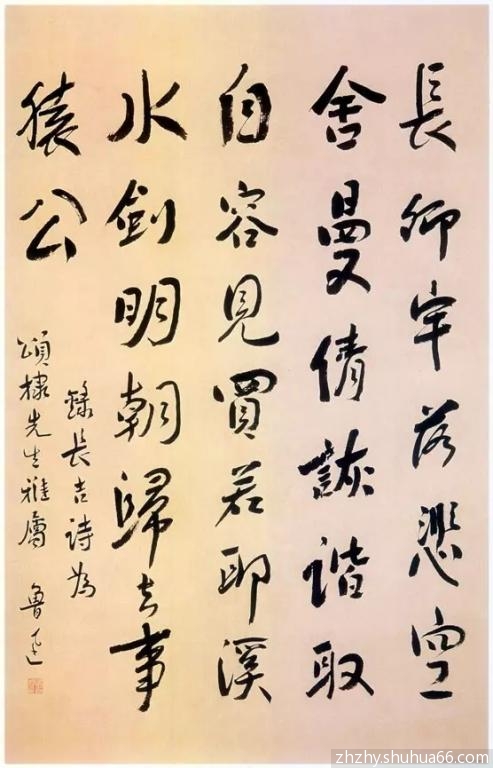 長卿牢落悲空
舍曼倩詼諧取
自容見買若耶溪
水劍明朝歸去事
猿公
錄長吉詩為
頌棣先生雅屬 魯迅
zhzhy.shuhua66.com